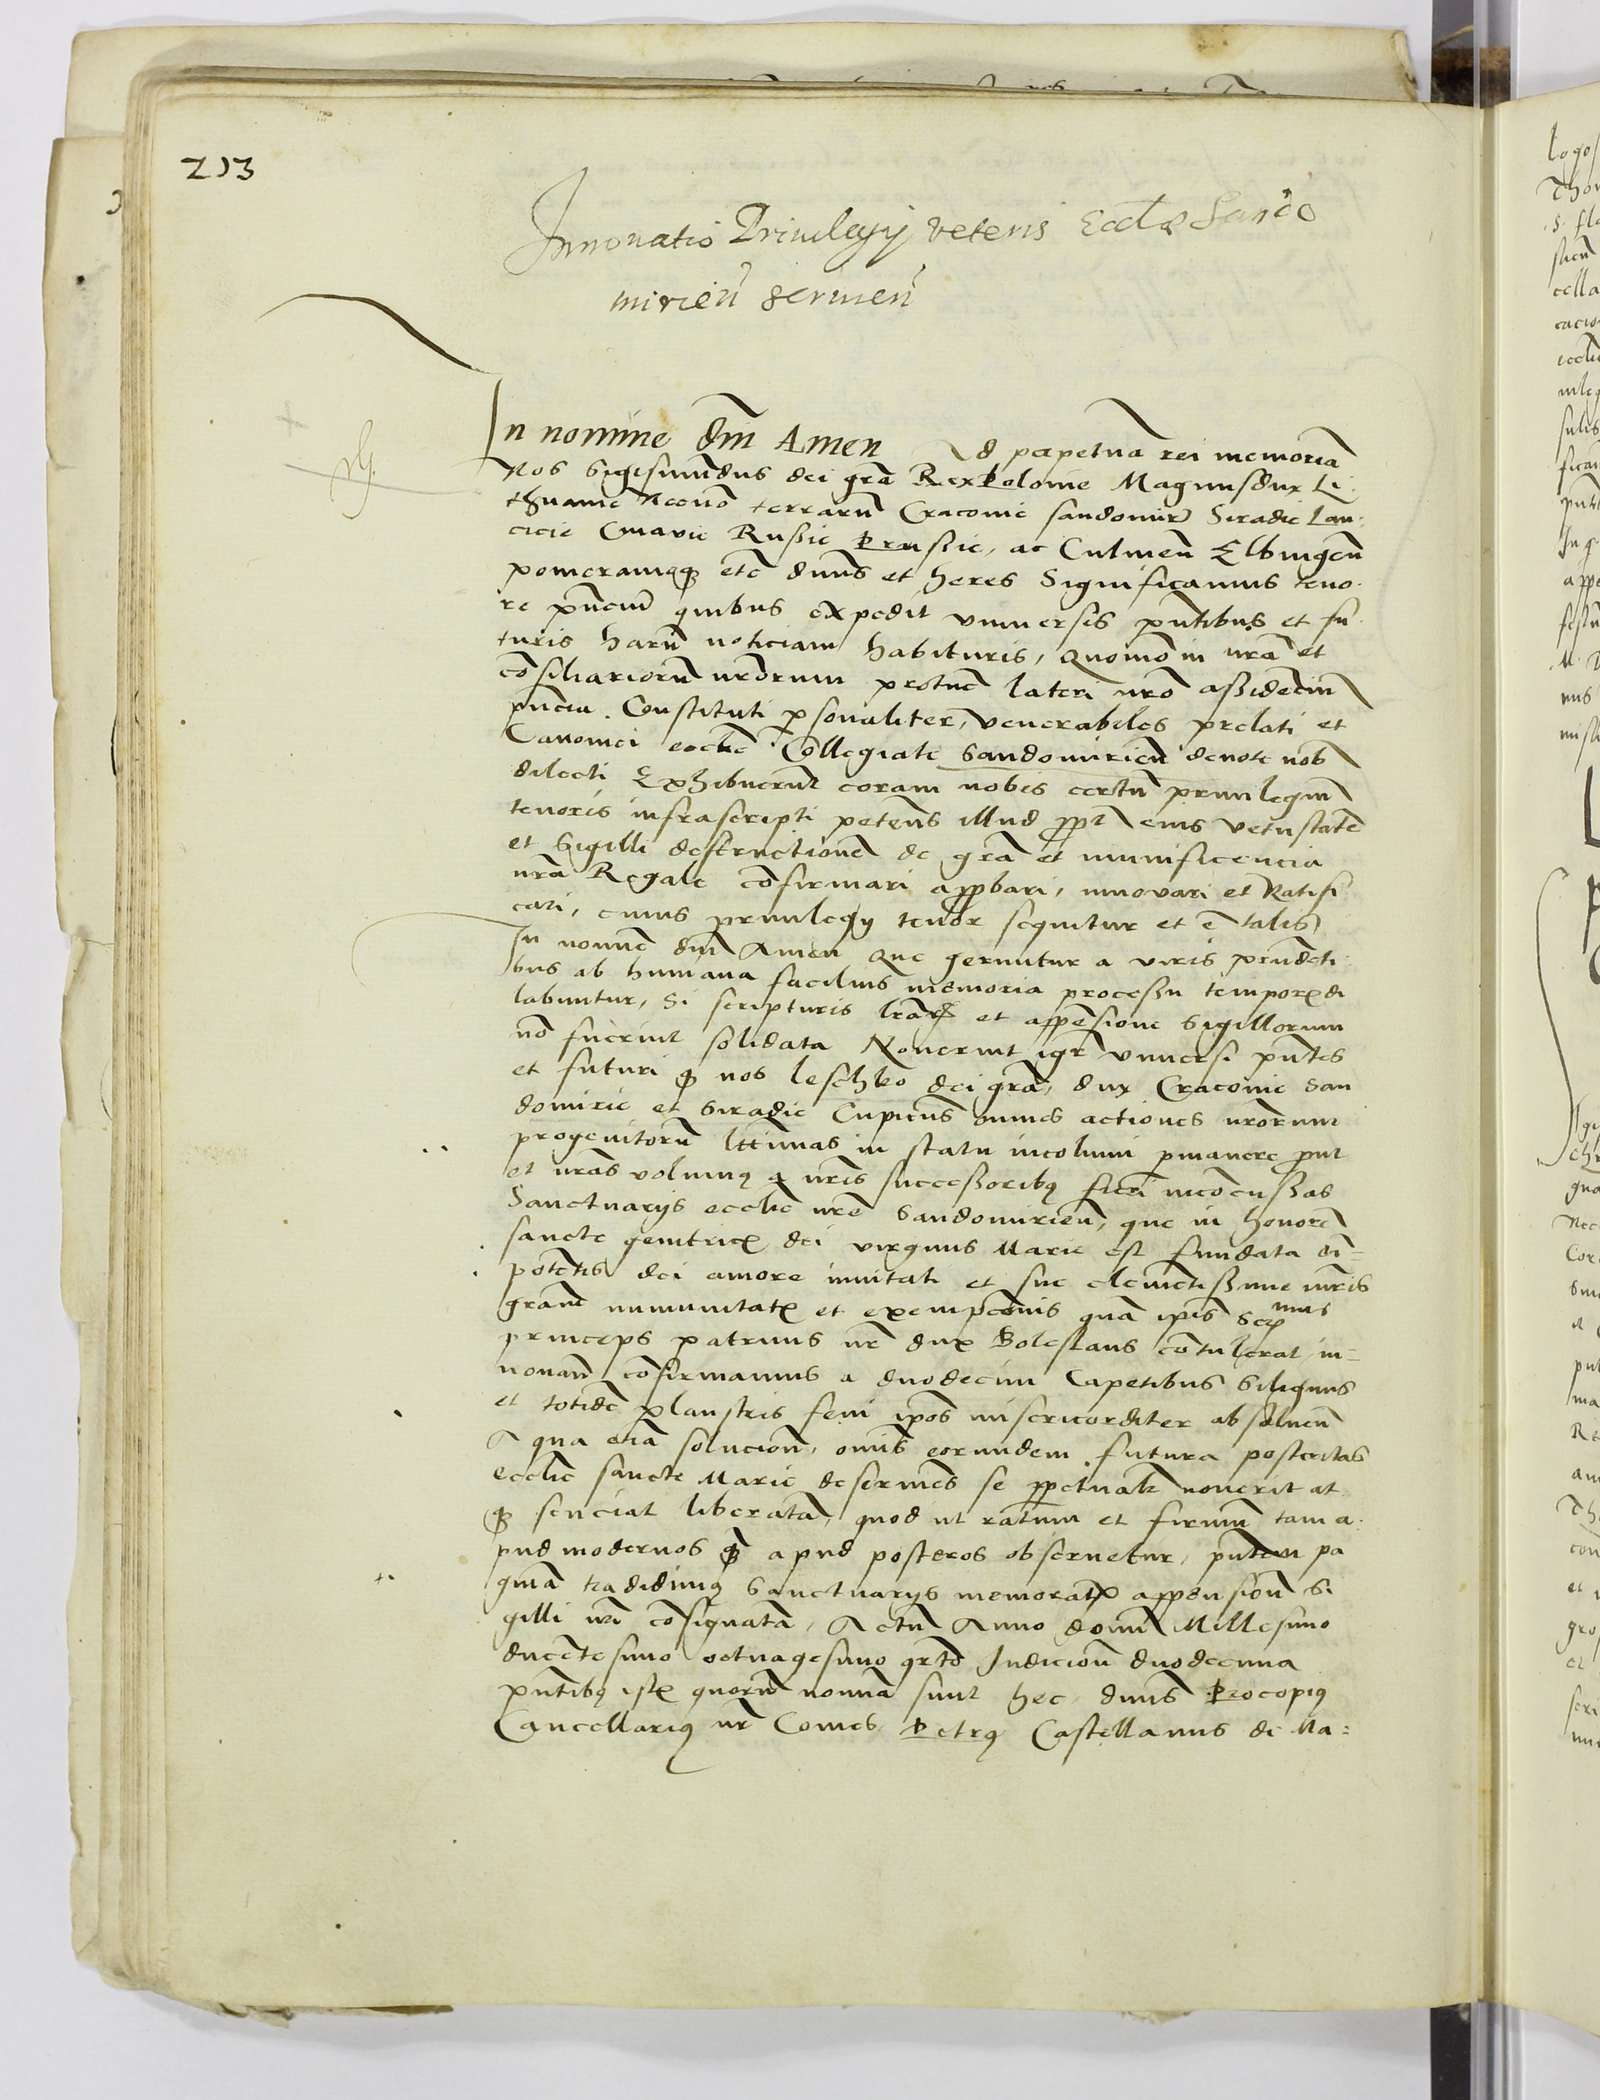 213
Innouatio Priuilegij veteris Eccl̃æ Sando
mirieñ sermeñ
In nomine dm̃ Amen Ad perpetuã rei memoriã
Nos Sigismundus dei grã Rex Polonie Magnus dux Li
thuanie Necnõ terrarũ Cracouie sandomir̃ Siradie Lan
cicie Cuiavie Russie Prussie, ac Culmeñ Elbingeñ
pomeranieq3 etc̃ dnũs et heres Significamus teno
re pñciũ quibus expedit vniuersis pñtibus et fu
turis harũ noticiam habituris, Quomõ in nrã et
cõsiliariorũ nrõrum protũc lateri nrõ assidẽciũ
pñcia. Constituti psonaliter, venerabiles prelati et
Canonici eccliẽ Collegiate Sandomirieñ deuote nob̃
dilecti Exhibuerũt coram nobis certũ priuilegiũ
tenoris infrascripti peteñs illud ppt̃ eius vetustatẽ
et Sigilli destructionẽ de grã et munificencia
nrã Regale cõfirmari appbari, innovari et Ratifi
cari, cuius priuilegij tenor sequitur et ẽ talis
In nomiẽ dm̃ Amen Que geruntur a viris prudẽti
bus ab humana facilius memoria processu temporꝫ di
labuntur, Si scripturis lrãꝝ et appẽsione Sigillorum
nõ fuerint solidata Nouerint igr̃ vniuersi pñtes
et futuri ꝙ nos leschko dei grã, dux Cracouie San
domirie et Siradie Cupieñs omnes actiones nrõrum
progenitorũ lttimas in statu incolumi pmanere put
et nrãs volumꝰ a nris̃ successoribꝰ fieri incõcussas
Sanctuarijs eccliẽ nrẽ Sandomirieñ, que in honorẽ
sancte genitricꝫ dei virginis Marie est fundata õi=
potẽtis dei amore inuitati et sue clemẽtissime mr̃is
grãm inmunitatꝫ et exempcõnis quã ipis̃ Seꝫ mus
princeps patruus nr̃ dux Boleslaus cõtulerat in=
nouañ cõfirmamus a duodecim Capetibus Siliginis
et totidẽ plaustris feni ipos̃ misericorditer absoluẽn
A qua eciã solucioñ, omis̃ eorundem futura posteritas
eccliẽ sancte Marie deseruieñs se ppetualr̃ nouerit at
q3 senciat liberatã, quod ut ratum et firmũ tam a
pud modernos q̃ apud posteros obseruetur, pñtem pa
ginã tradidimꝰ Sanctuarijs memoratꝫ appensioñ Si
gilli nrĩ cõsignatã, Actũ Anno domĩ Millesimo
ducẽtesimo octuagesimo qrtõ Indicioñ duodecima
pñtibꝰ istꝫ quorũ nomiã sunt hec, dnũs Procopiꝰ
Cancellariꝰ nr̃ Comes Petrꝰ Castellanus de Ma=